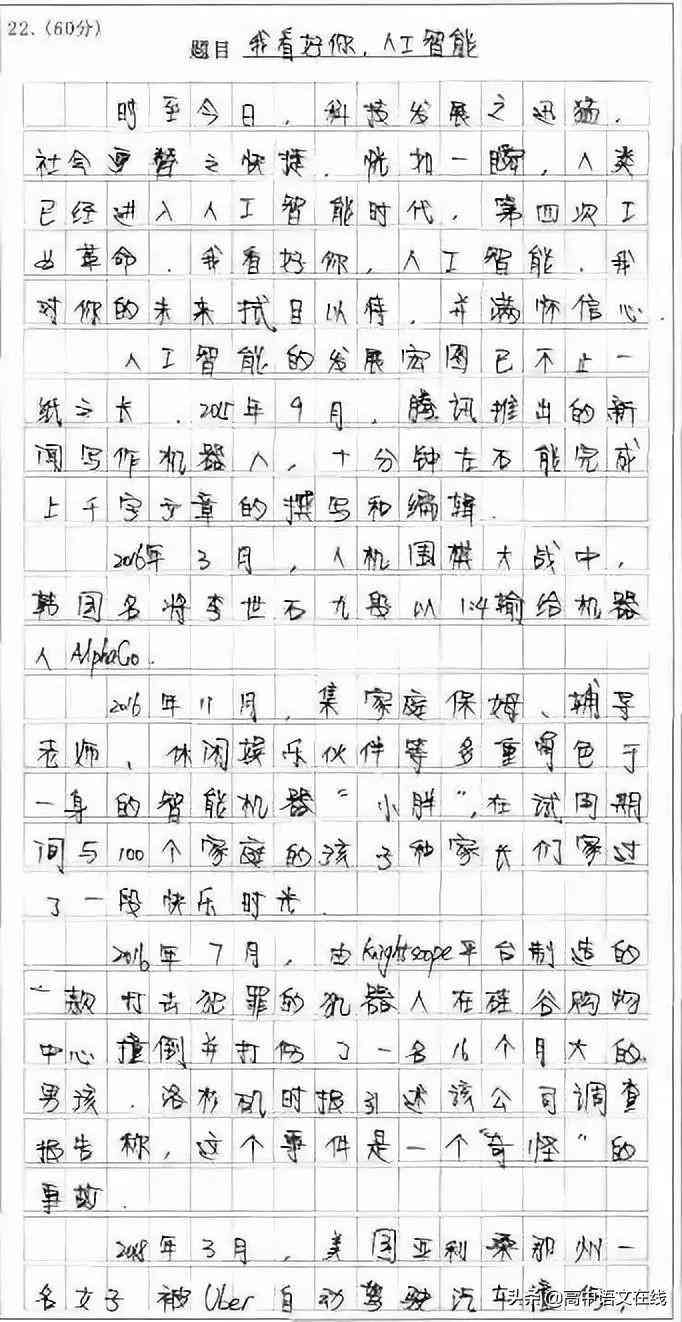 22.（60分）
题目 我看好你，人工智能
时至今日，科技发展之迅猛，
社会更替之快捷，恍如一瞬，人类
已经进入人工智能时代，第四次工
业革命。我看好你，人工智能，我
对你的未来拭目以待，并满怀信心。
人工智能的发展宏图已不止一
纸之长。2015年9月，腾讯推出的新
闻写作机器人，十分钟左右能完成
上千字文章的撰写和编辑。
2016年3月，人机围棋大战中，
韩国名将李世石九段以1:4输给机器
人AlphaGo.
2016年11月，集家庭保姆、辅导
老师、休闲娱乐伙伴等多重角色于
一身的智能机器“小胖”，在试用期
间与100个家庭的孩子和家长们家过
了一段快乐时光。
2016年7月，由Knightscope平台制造的
一款打击犯罪的机器人在硅谷购物
中心撞倒并打伤了一名16个月大的
男孩。洛杉矶时报引述该公司调查
报告称，这个事件是一个“奇怪”的
事故。
2018年3月，美国亚利桑那州一
名女子被Uber自动驾驶汽车撞伤，
头条@高中语文在线